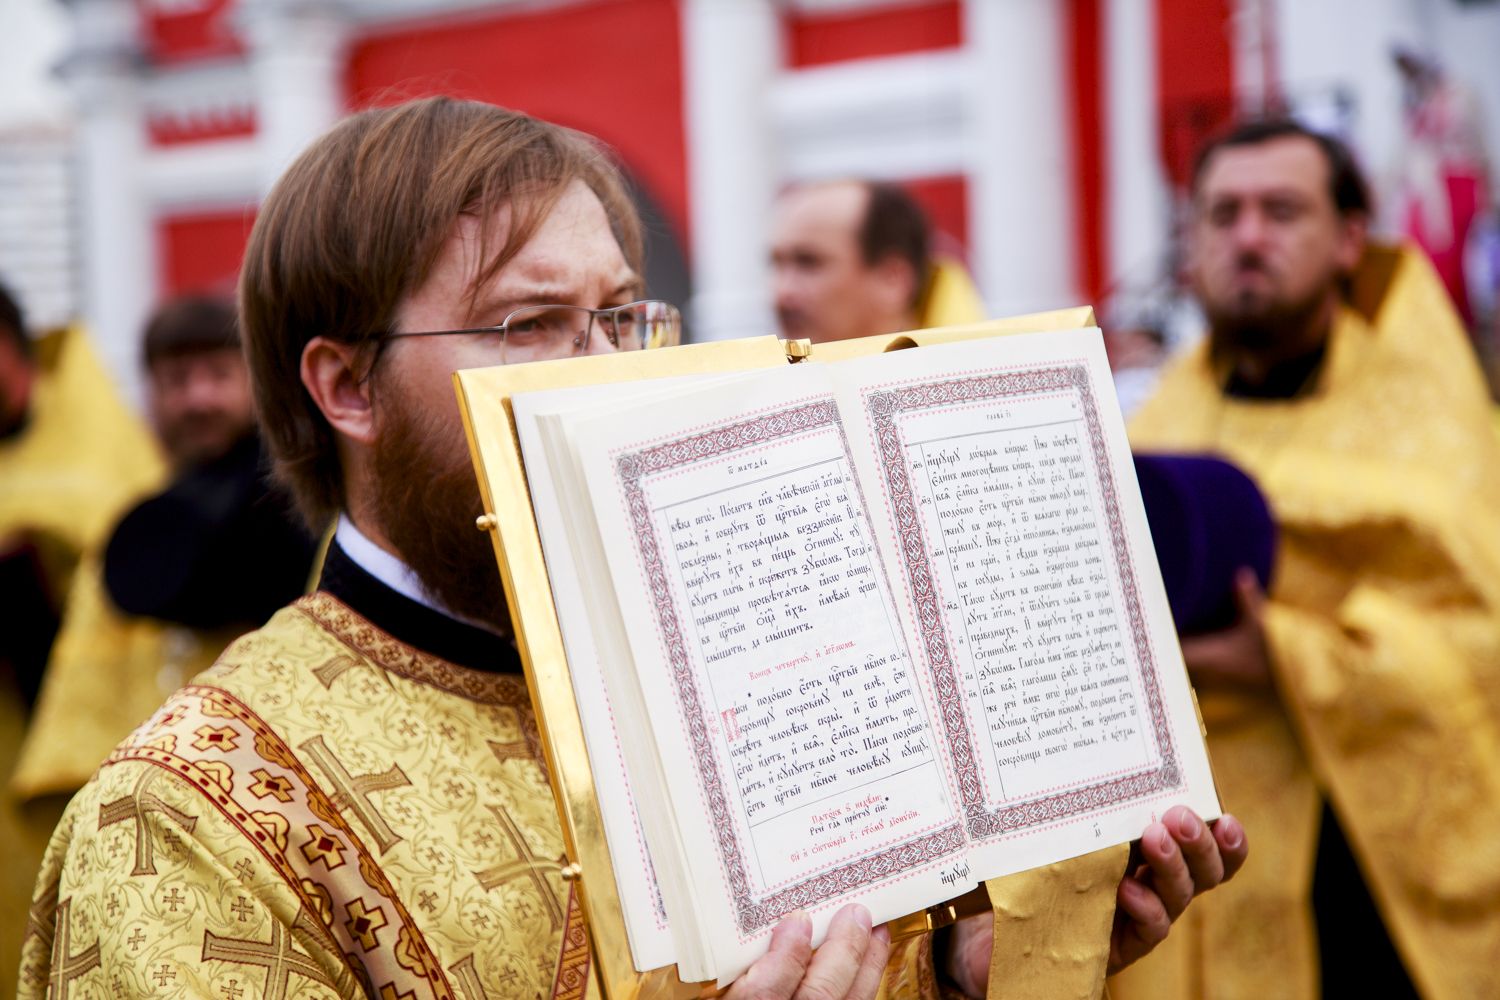 Ѿ маѳеа
вѣка сегѡ̀. По́слетъ сн҃ъ чл҃вѣ́ческїй а҆́гг҃лы
своѧ̑, и҆ соберꙋ́тъ ѿ црⷭ҇твїѧ є҆гѡ̀ всѧ̑
собла́зны, и҆ творѧ́щыѧ беззако́нїе: И҆
вве́ргꙋтъ и҆̀хъ въ пе́щь ѻ҆́гненнꙋ: тꙋ̀
бꙋ́детъ пла́чь и҆ скре́жетъ зꙋбѡ́мъ. Тогда̀
пра́ведницы просвѣтѧ́тсѧ ꙗ҆́кѡ со́лнце,
въ црⷭ҇твїи ѻ҆ц҃а̀ и҆́хъ. и҆мѣ́ѧй ᲂу҆́шы
слы́шати, да слы́шитъ.
Конецъ четверткꙋ, и҆ а҆гг҃лѡмъ.
Па́ки подо́бно є҆́сть црⷭ҇твїе нбⷭ҇ное со-
кро́вищꙋ сокрове́нꙋ на селѣ̀, є҆́же
ѡ҆брѣ́тъ человѣ́къ скры̀: и҆ ѿ ра́дости
є҆гѡ̀ и҆́детъ, и҆ всѧ̑, є҆ли̑ка и҆́мать, про-
дае́тъ, и҆ кꙋпꙋ́етъ село̀ то̀. Па́ки подо́бно
є҆́сть црⷭ҇твїе нбⷭ҇ное человѣ́кꙋ кꙋпцꙋ̀,
Рече гдⷭ҇ь притчꙋ сїю:
и҆́щꙋщꙋ
глава̀ г҃і
и҆́щꙋщꙋ до́брыхъ би́серей: И҆́же ѡ҆брѣ́тъ
є҆ди́нъ многоцѣ́ненъ би́серъ, ше́дъ продадѐ
всѧ̑ є҆ли̑ка и҆мѧ́ше, и҆ кꙋпѝ є҆го̀. Па́ки
подо́бно є҆́сть црⷭ҇твїе нбⷭ҇ное не́водꙋ вве́р-
женꙋ въ мо́ре, и҆ ѿ всѧ́кагѡ ро́да со-
бра́вшꙋ. И҆́же є҆гда̀ и҆спо́лнисѧ, и҆звлеко́ша
и҆ на кра́й, и҆ сѣ́дше и҆збра́ша дѡ́брыѧ
въ сосꙋ́ды, а҆ ѕлы̑ѧ и҆зверго́ша во́нъ.
Та́кѡ бꙋ́детъ въ сконча́нїи вѣ́ка: и҆зы́-
дꙋтъ а҆́гг҃ли, и҆ ѿлꙋча́тъ ѕлы̑ѧ ѿ среды̀
пра́ведныхъ, И҆ вве́ргꙋтъ и҆̀хъ въ пе́щь
ѻ҆́гненнꙋ: тꙋ̀ бꙋ́детъ пла́чь и҆ скре́жетъ
зꙋбѡ́мъ. Глаго́ла и҆̀мъ і҆и҃съ: разꙋмѣ́сте ли
сїѧ̑ всѧ̑; глаго́лаша є҆мꙋ̀: є҆́й гдⷭ҇и. Ѻ҆́нъ
же речѐ и҆̀мъ: сегѡ̀ ра́ди всѧ́къ кни́жникъ
наꙋчи́всѧ црⷭ҇твїю нбⷭ҇номꙋ, подо́бенъ є҆́сть
человѣ́кꙋ домови́тꙋ, и҆́же и҆зно́ситъ ѿ
сокро́вища своегѡ̀ нѡ́ваѧ и҆ ве́тхаѧ.